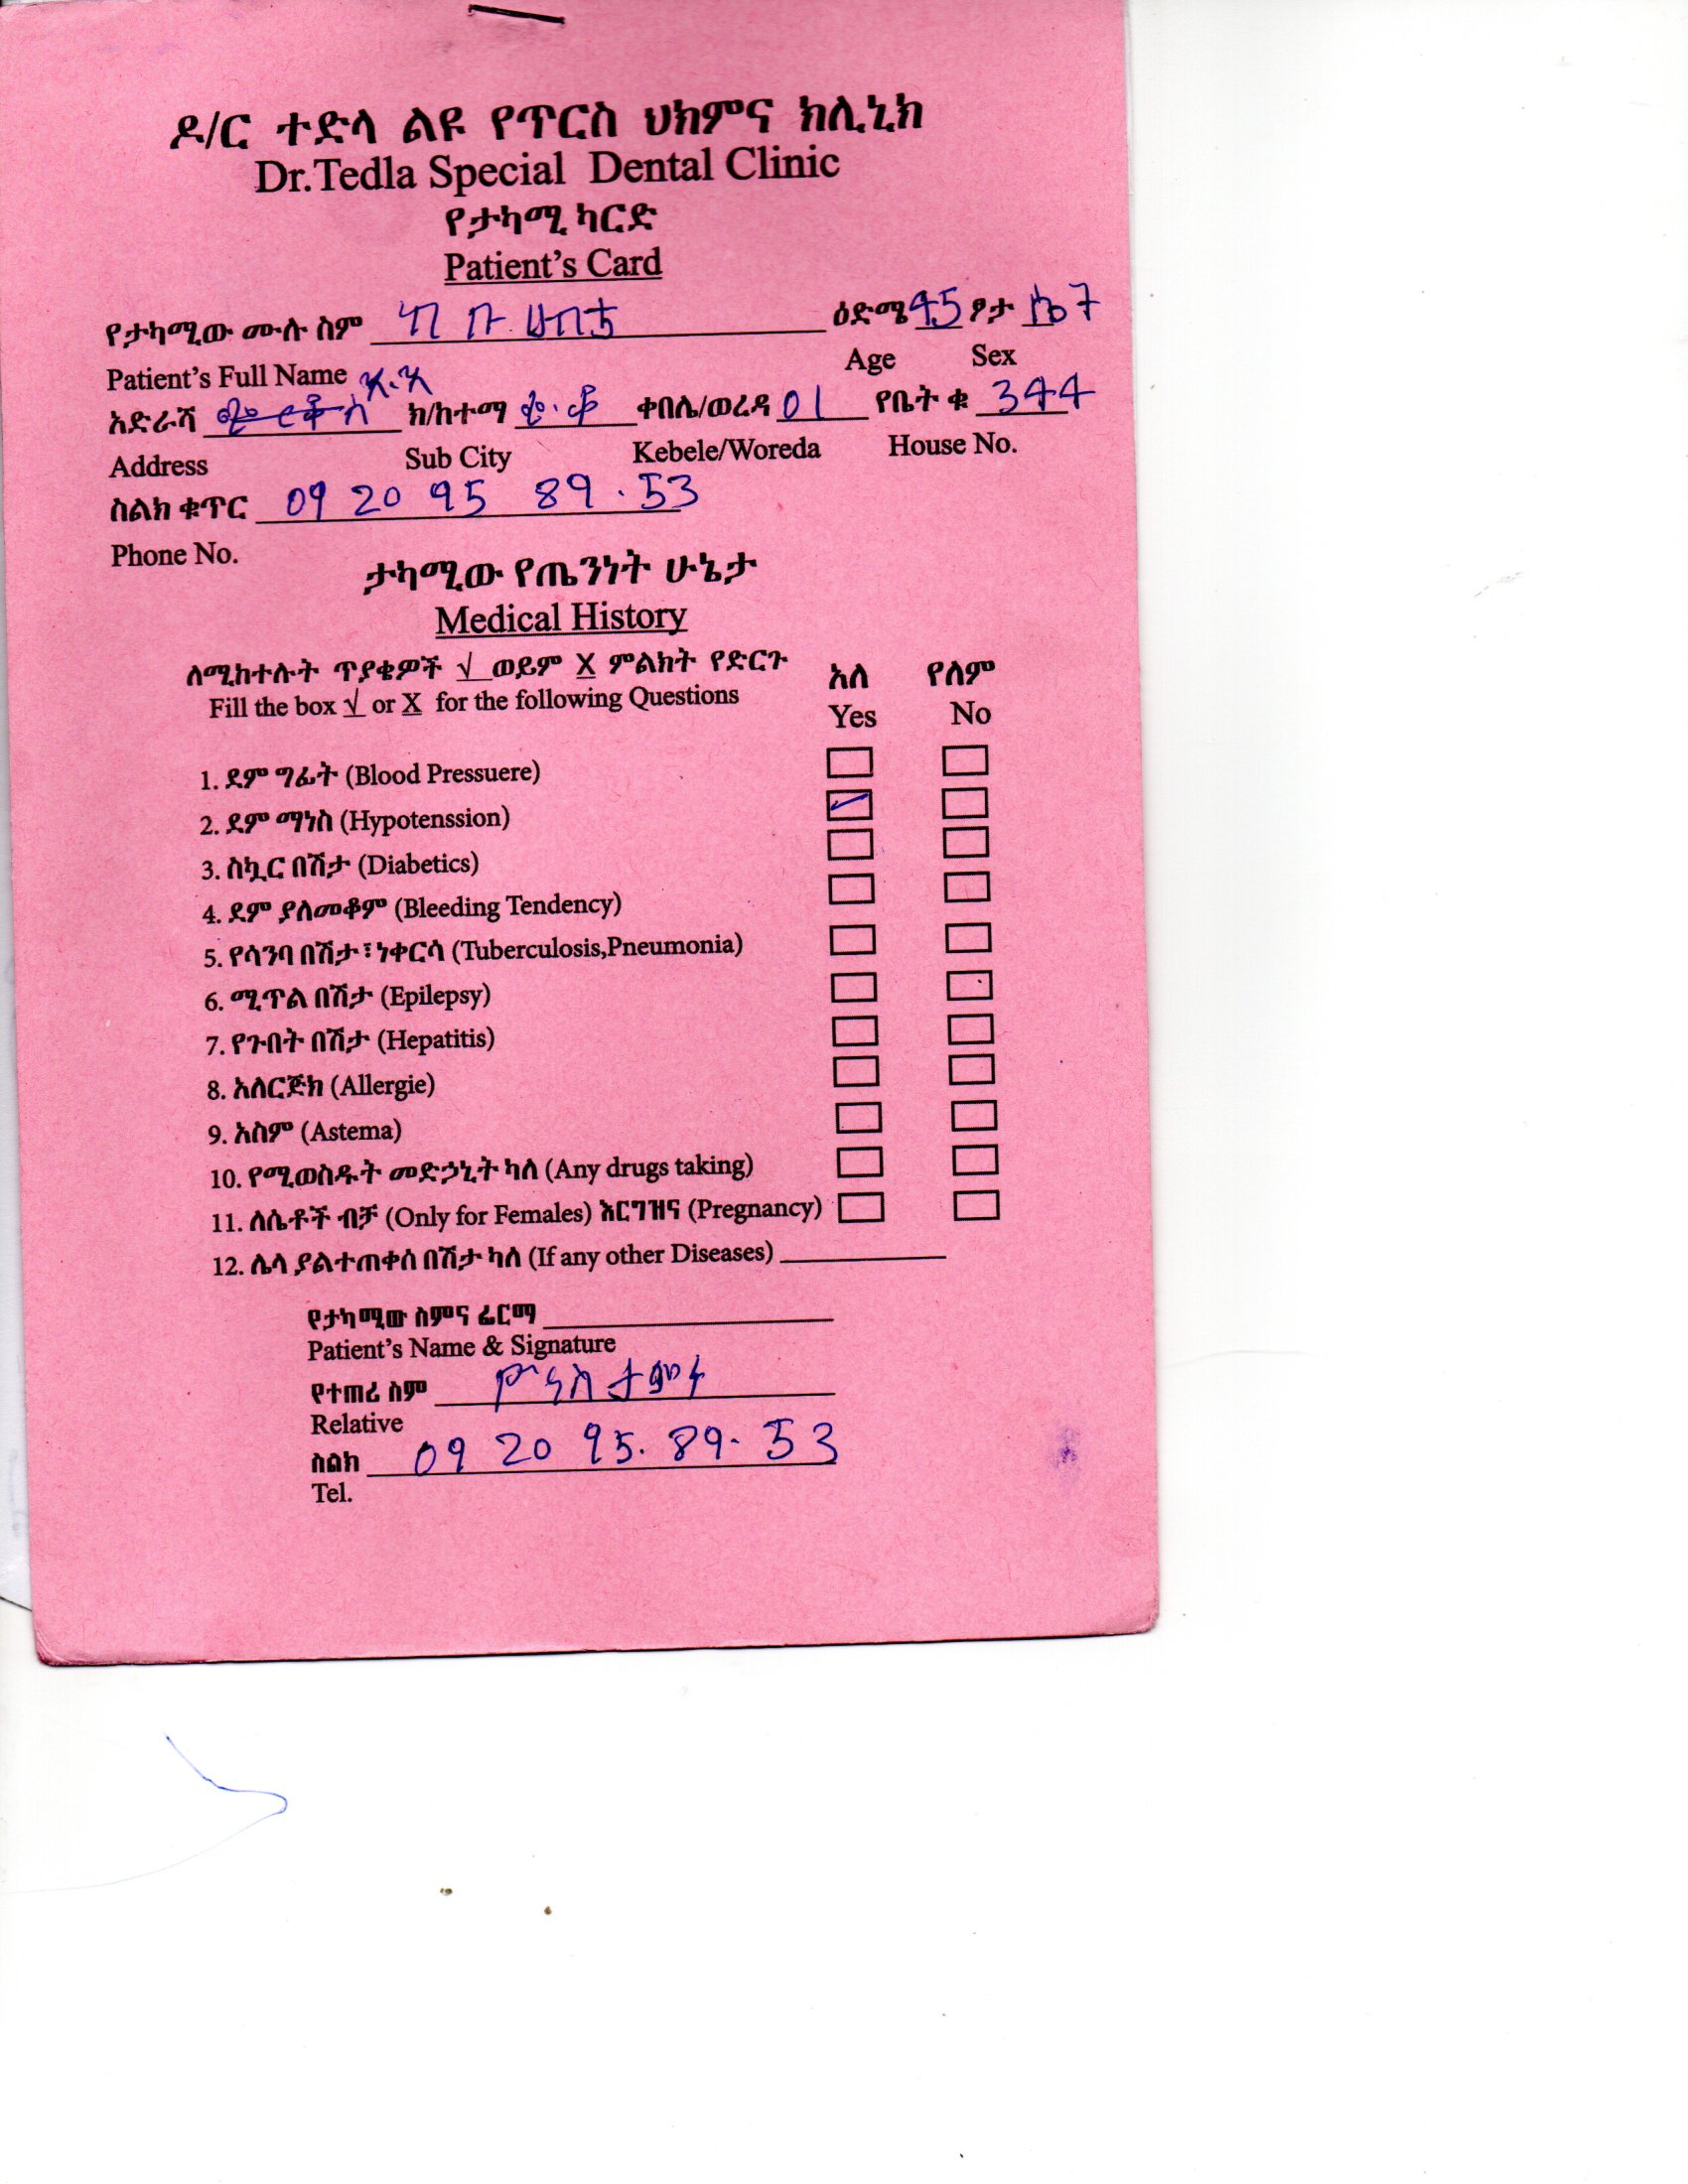 ዶ/ር ተድላ ልዩ የጥርስ ህክምና ክሊኒክ
Dr.Tedla Special Dental Clinic
የታካሚ ካርድ
Patient's Card
የታካሚው ሙሉ ስም ዕድሜ 45 ፆታ
Patient's Full Name Age Sex
አድራሻ ክ/ከተማ ቀበሌ/ወረዳ 01 የቤት ቁ 344
Address Sub City Kebele/Woreda House No.
ስልክ ቁጥር 09 20 95 89.53
Phone No.
ታካሚው የጤንነት ሁኔታ
Medical History
ለሚከተሉት ጥያቄዎች √ ወይም X ምልክት የድርጉ አለ የለም
Fill the box √ or X for the following Questions Yes No
1. ደም ግፊት (Blood Pressuere)
2. ደም ማነስ (Hypotenssion) ✓
3. ስኳር በሽታ (Diabetics)
4. ደም ያለመቆም (Bleeding Tendency)
5. የሳንባ በሽታ፣ነቀርሳ (Tuberculosis,Pneumonia)
6. ሚጥል በሽታ (Epilepsy)
7. የጉበት በሽታ (Hepatitis)
8. አለርጅክ (Allergie)
9. አስም (Astema)
10. የሚወስዱት መድኃኒት ካለ (Any drugs taking)
11. ለሴቶች ብቻ (Only for Females) እርግዝና (Pregnancy)
12. ሌላ ያልተጠቀሰ በሽታ ካለ (If any other Diseases)
የታካሚው ስምና ፊርማ
Patient's Name & Signature
የተጠሪ ስም ዮናስ
Relative
ስልክ 09 20 95.89.53
Tel.